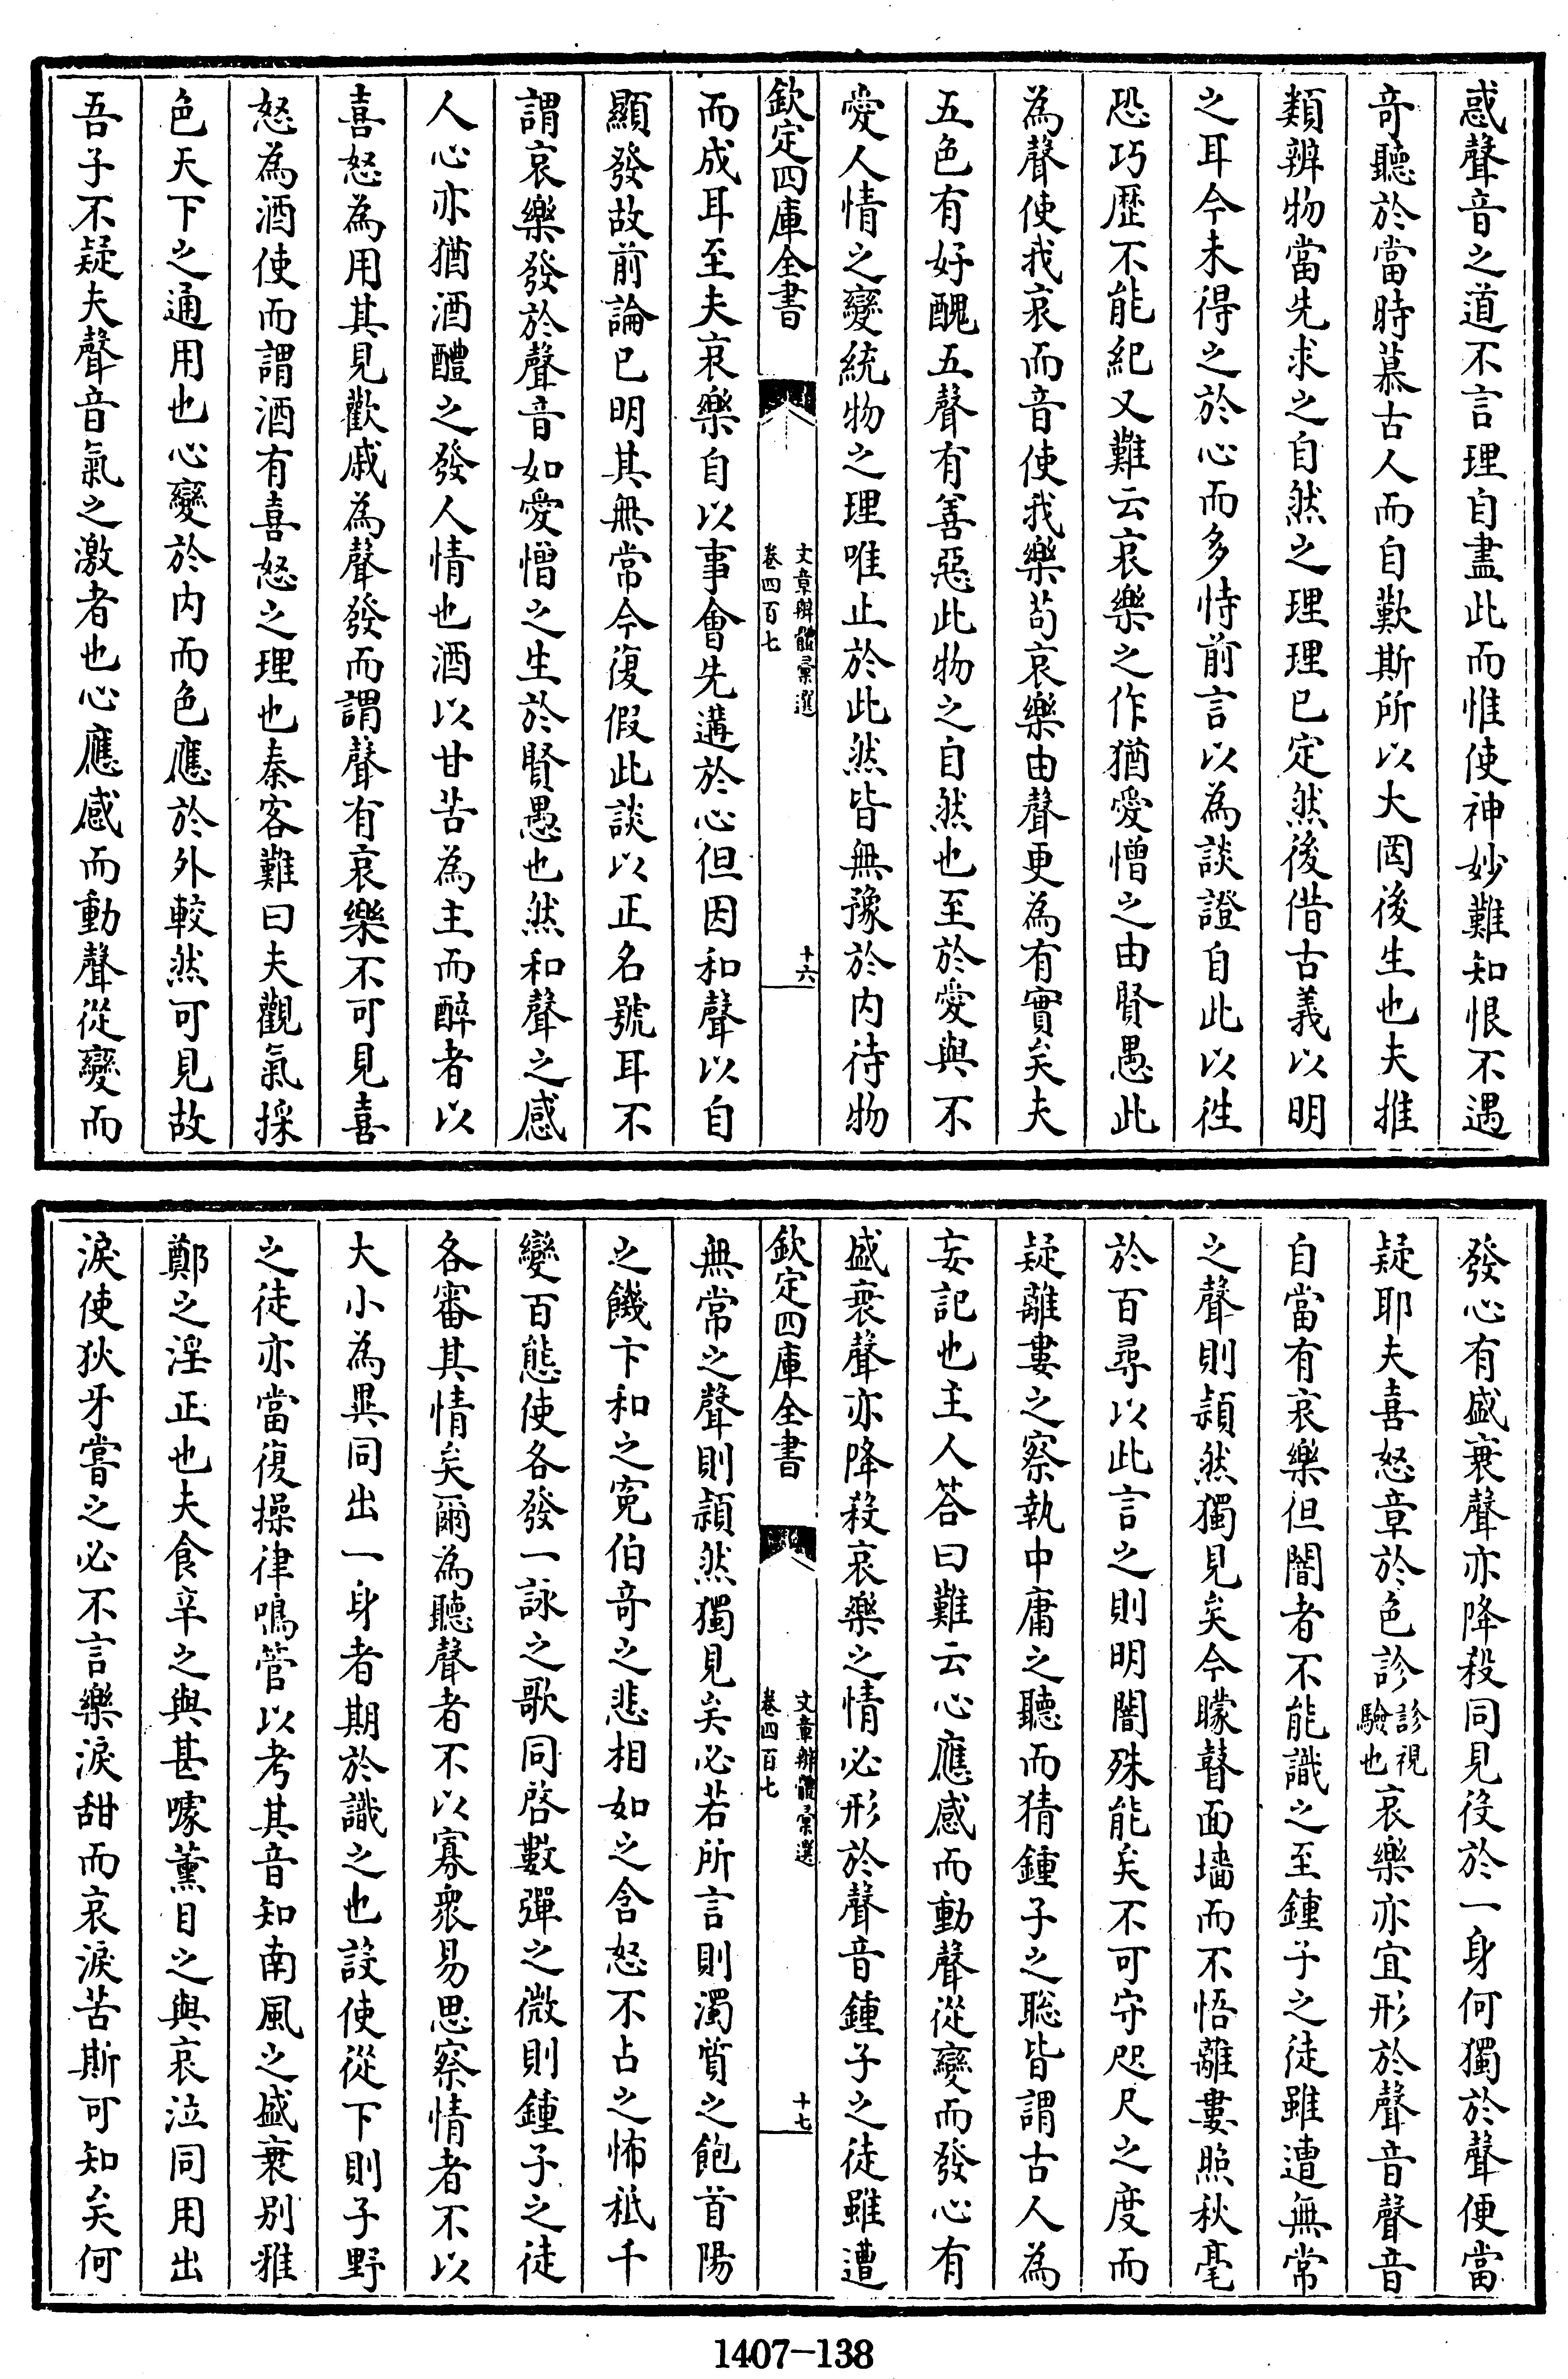 惑聲音之道不言理自盡此而惟使神妙難知恨不遇
竒聽於當時慕古人而自歎斯所以大罔後生也夫推
類辨物當先求之自然之理理已定然後借古義以明
之耳今未得之於心而多恃前言以為談證自此以徃
恐巧歴不能紀又難云哀樂之作猶愛憎之由賢愚此
為聲使我哀而音使我樂茍哀樂由聲更為有實矣夫
五色有好醜五聲有善惡此物之自然也至於愛與不
愛人情之變統物之理唯止於此然皆無豫於内待物
欽定四庫全書
文章辨體彙選
卷四百七
十六
而成耳至夫哀樂自以事會先遘於心但因和聲以自
顯發故前論已明其無常今復假此談以正名號耳不
謂哀樂發於聲音如愛憎之生於賢愚也然和聲之感
人心亦猶酒醴之發人情也酒以甘苦為主而醉者以
喜怒為用其見歡戚為聲發而謂聲有哀樂不可見喜
怒為酒使而謂酒有喜怒之理也秦客難曰夫觀氣採
色天下之通用也心變於内而色應於外較然可見故
吾子不疑夫聲音氣之激者也心應感而動聲從變而
發心有盛衰聲亦降殺同見役於一身何獨於聲便當
疑耶夫喜怒章於色診診視驗也哀樂亦宜形於聲音聲音
自當有哀樂但闇者不能識之至鍾子之徒雖遭無常
之聲則頴然獨見矣今矇瞽面墻而不悟離婁照秋毫
於百尋以此言之則明闇殊能矣不可守咫尺之度而
疑離婁之察執中庸之聽而猜鍾子之聡皆謂古人為
妄記也主人答曰難云心應感而動聲從變而發心有
盛衰聲亦降殺哀樂之情必形於聲音鍾子之徒雖遭
欽定四庫全書
文章辨體彙選
卷四百七
十七
無常之聲則頴然獨見矣必若所言則濁質之飽首陽
之饑卞和之寃伯竒之悲相如之含怒不占之怖秪千
變百態使各發一詠之歌同啓數彈之微則鍾子之徒
各審其情矣爾為聽聲者不以寡衆易思察情者不以
大小為異同出一身者期於識之也設使從下則子野
之徒亦當復操律鳴管以考其音知南風之盛衰别雅
鄭之淫正也夫食辛之與甚噱薫目之與哀泣同用出
淚使狄牙嘗之必不言樂淚甜而哀淚苦斯可知矣何
1407-138